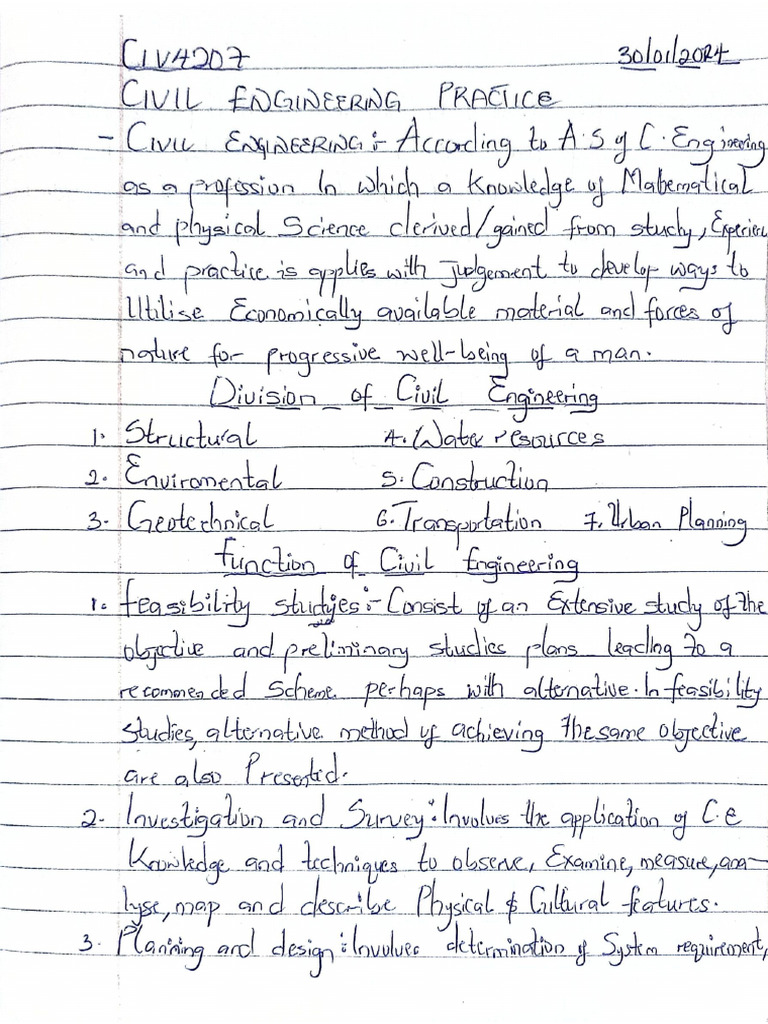 CIV4207 30/01/2024
CIVIL ENGINEERING PRACTICE
- CIVIL ENGINEERING:- According to A.S of C.Engineering
as a profession In which a Knowledge of Mathematical
and physical Science derived/gained from study, Experien
and practice is applies with judgement to develop ways to
Utilise Economically available material and forces of
nature for progressive well-being of a man.
Division of Civil Engineering
1. Structural 4. Water resources
2. Enviromental 5. Construction
3. Geotechnical 6. Transportation 7. Urban Planning
Function of Civil Engineering
1. Feasibility studyies:- Consist of an Extensive study of the
objective and preliminary studies plans leading to a
recommended Scheme perhaps with alternative. In feasibility
studies, alternative method of achieving the same objective
are also Presented.
2- Investigation and Survey: Involves the application of C.E
Knowledge and techniques to observe, Examine, measure, ana-
lyse, map and describe Physical & Cultural features.
3. Planning and design: Involves determination of System requirement,